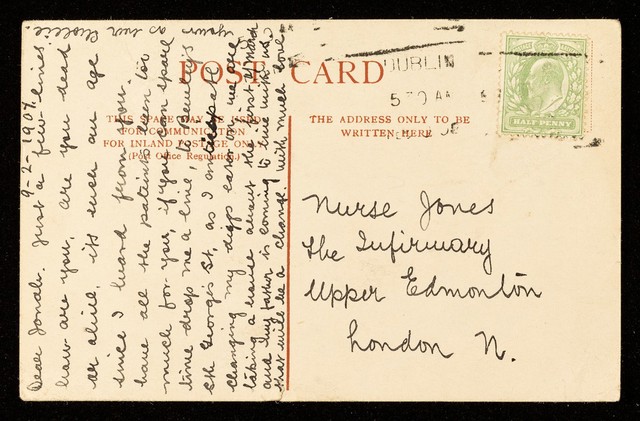 POST CARD
THIS SPACE MAY BE USED
FOR COMMUNICATION
FOR INLAND POSTAGE ONLY
(Post Office Regulation).
THE ADDRESS ONLY TO BE
WRITTEN HERE
DUBLIN
5 30 AM
08
HALF PENNY
Nurse Jones
The Infirmary
Upper Edmonton
London N.
9-2-1907.
Dear Jonah. Just a few lines
how are you, are you dead
or alive, its such an age
since I heard from you
have all the patients been too
much for you, if you can spare
time drop me a line, to
Georgis St, as I am
changing my diggs later we are
taking a house about the first of March
and my father is coming to live with us,
that will be a change. With much love
yours as ever